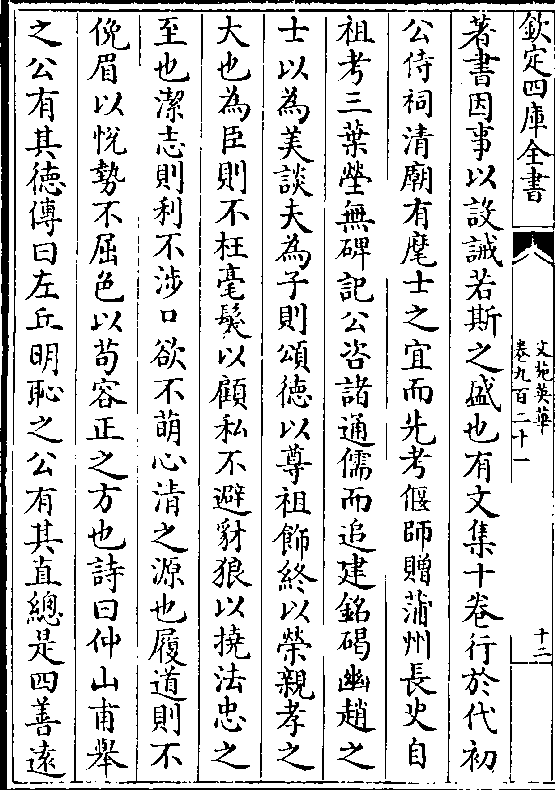 欽定四庫全書
文苑英華
卷九百二十一
十二
著書因事以設誡若斯之盛也有文集十卷行於代初
公侍祠清廟有麾士之宜而先考偃師贈蒲州長史自
祖考三葉塋無碑記公咨諸通儒而追建銘碣幽趙之
士以為美談夫為子則頌德以尊祖飾終以榮親孝之
大也為臣則不枉毫髮以顧私不避豺狼以撓法忠之
至也潔志則利不涉口欲不萌心清之源也履道則不
俛眉以悅勢不屈色以苟容正之方也詩曰仲山甫舉
之公有其徳傳曰左丘明恥之公有其直總是四善遠